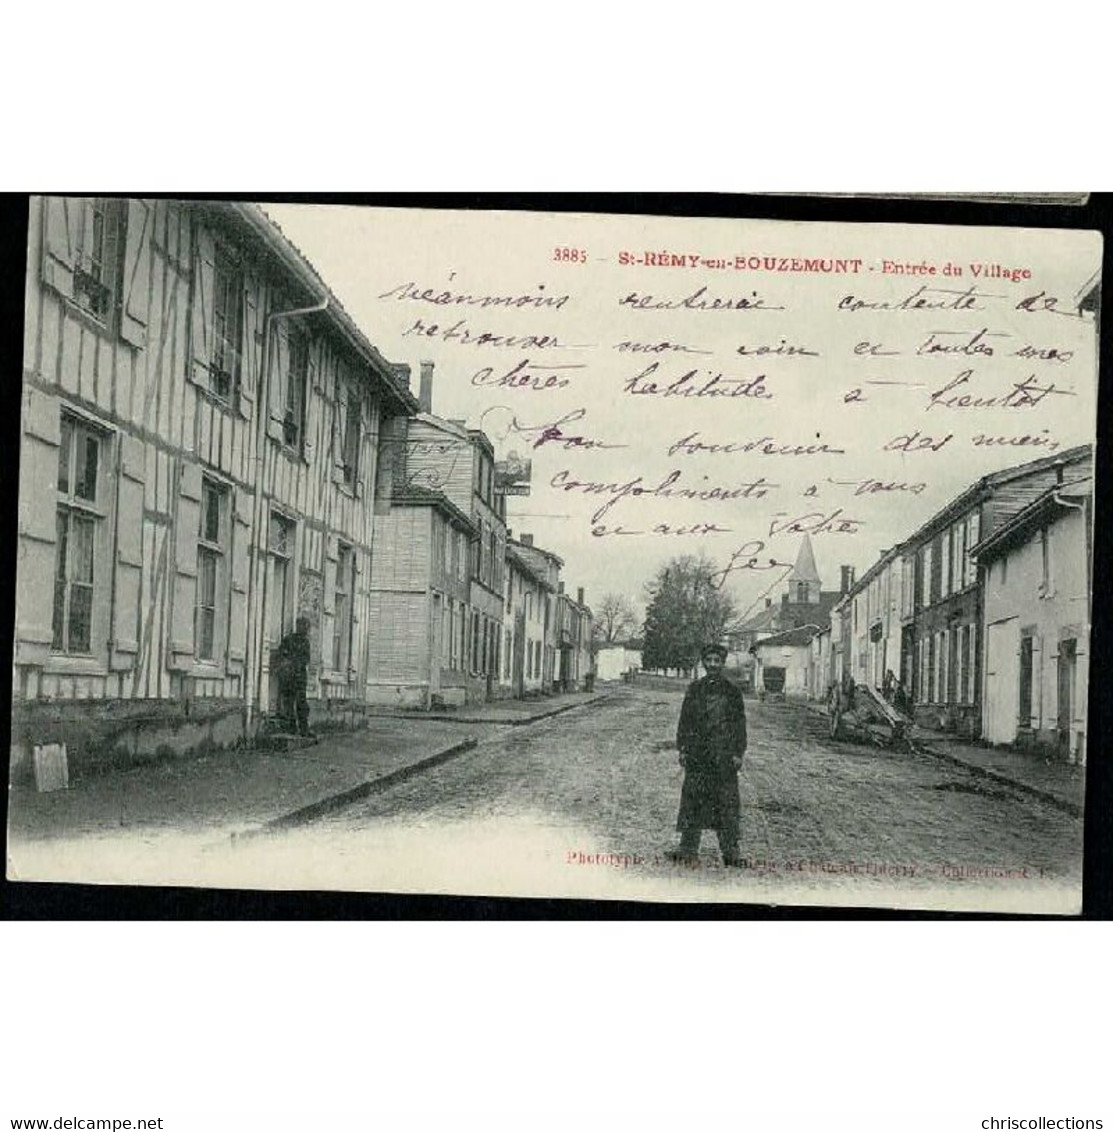 3885 - St-RÉMY-en-BOUZEMONT - Entrée du Village
néanmoins rentrerai contente de
retrouver mon coin et toutes mes
chères habitudes à bientôt
Bon souvenir des miens
compliments à vous
et aux Vôtre
Phototypie à Château-Thierry. - Collection R. F.
www.delcampe.net
chriscollections